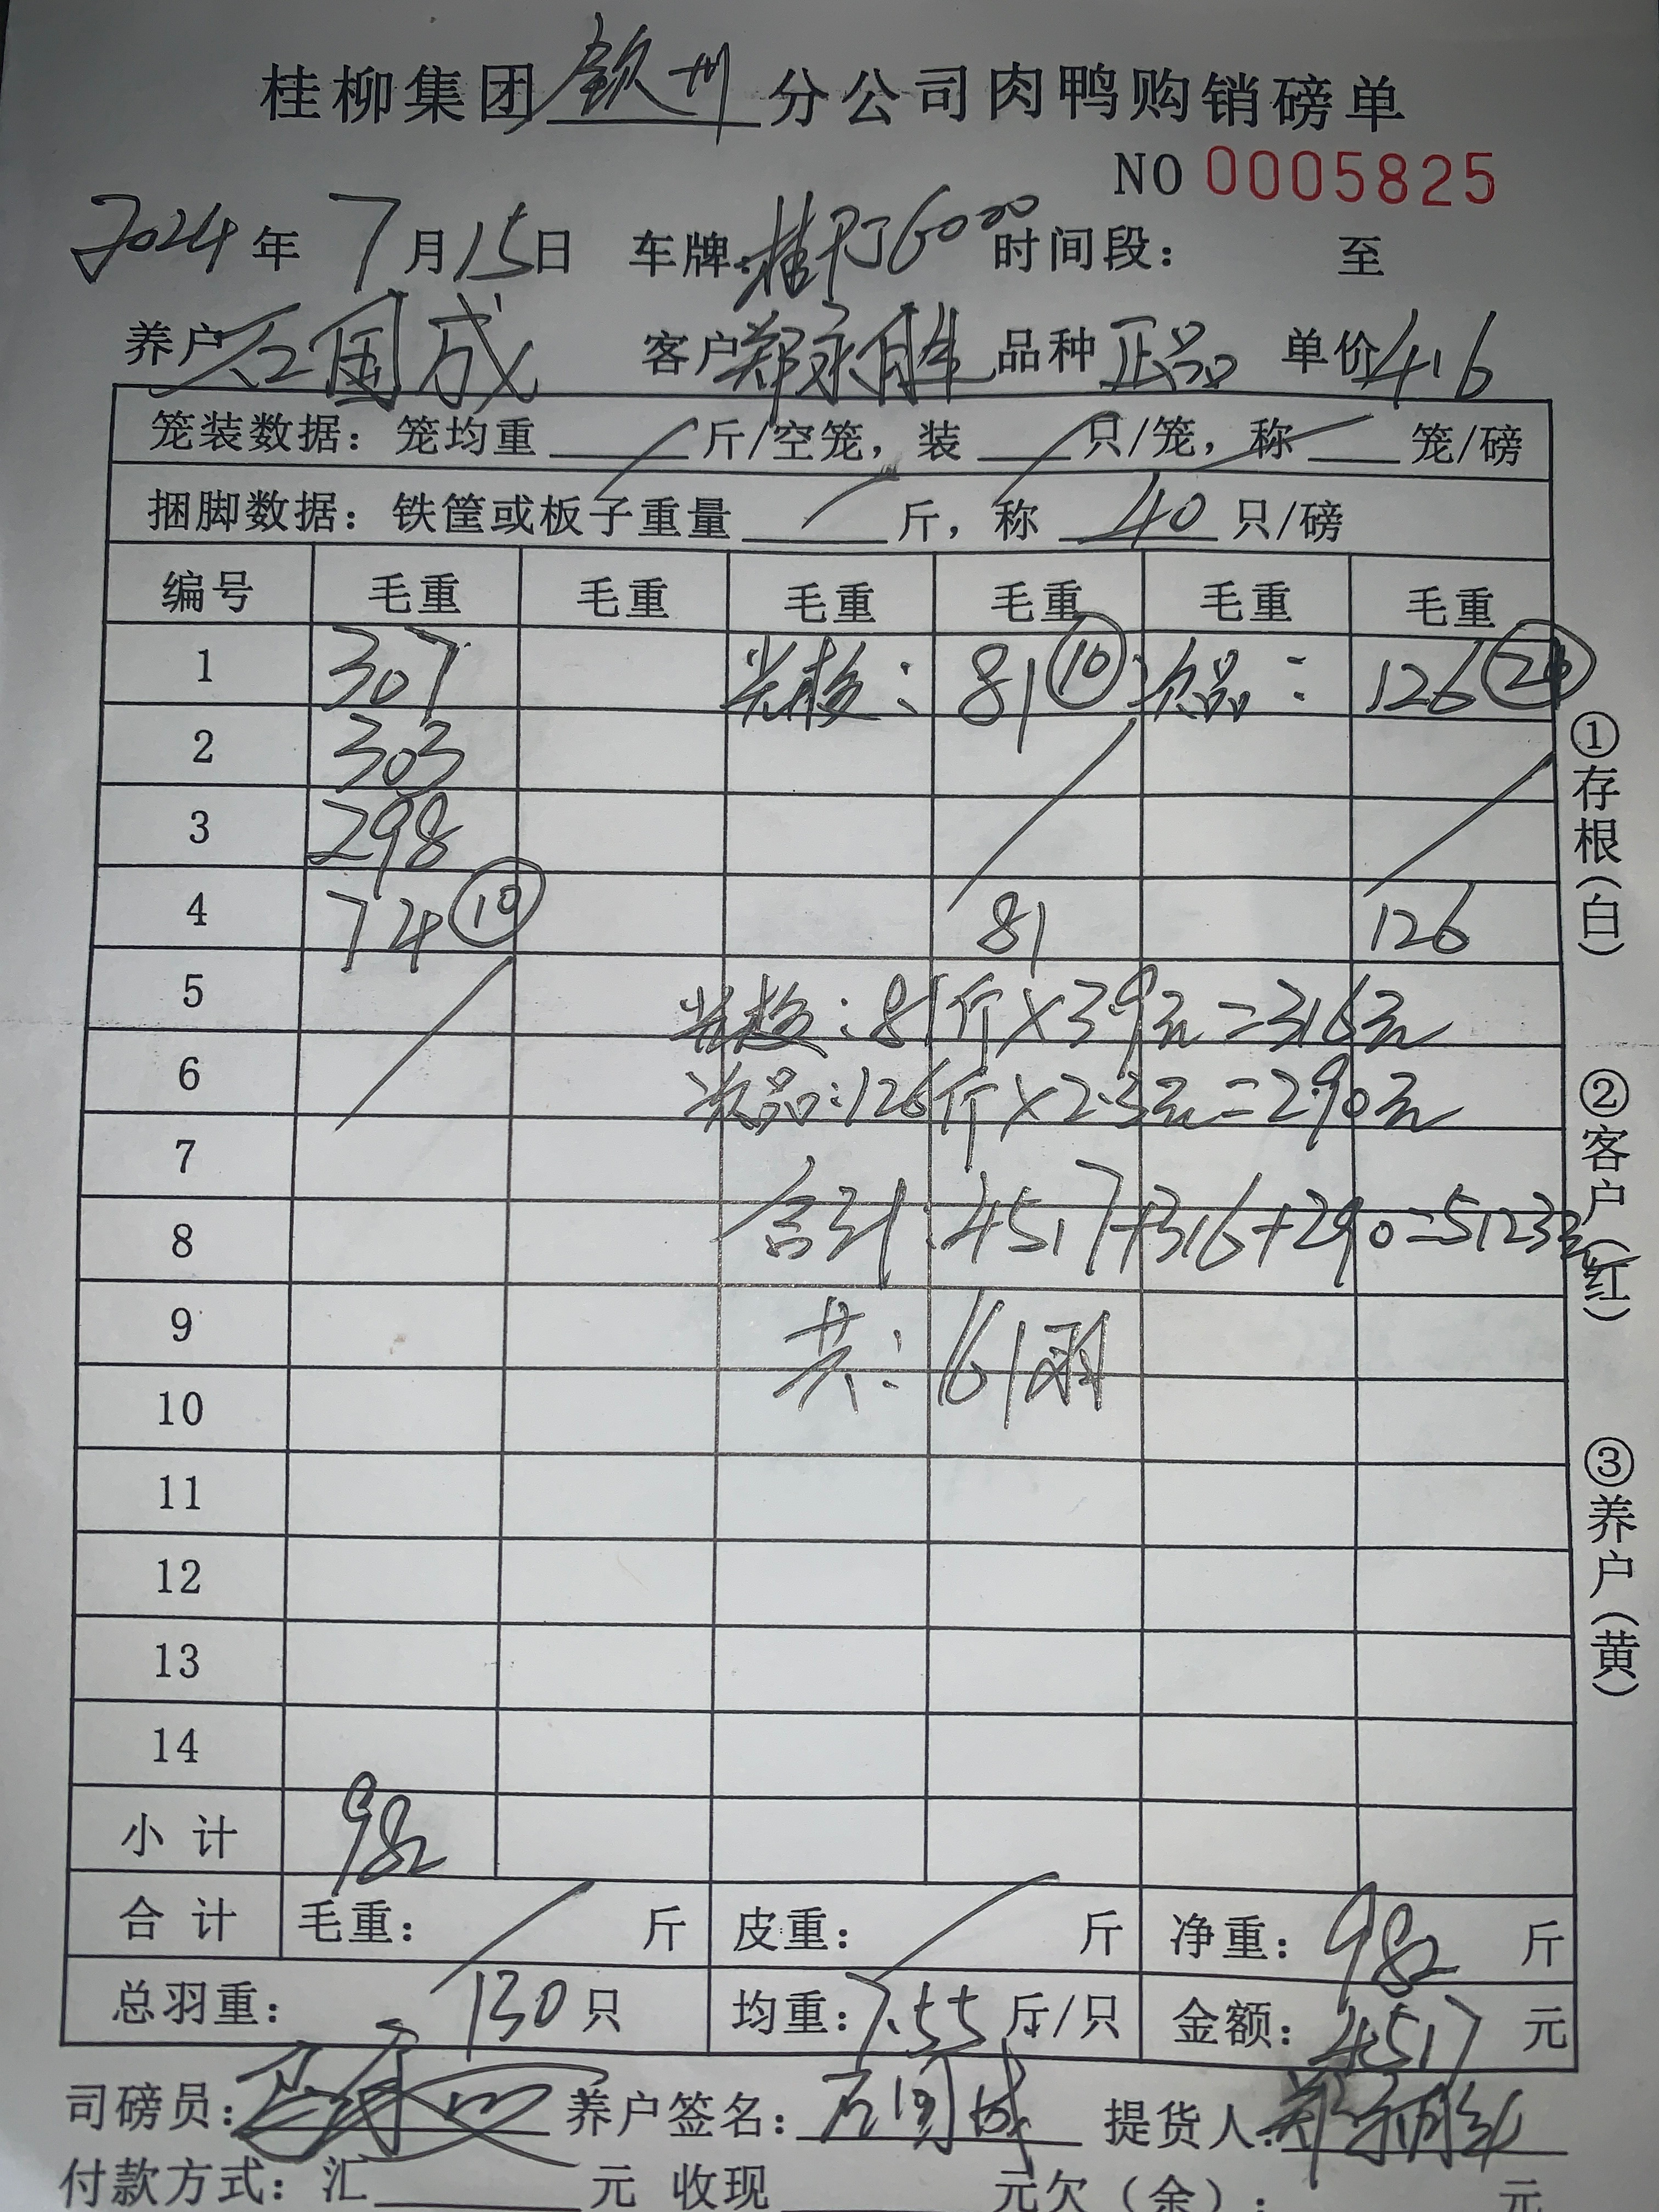 桂柳集团 钦州 分公司肉鸭购销磅单
NO 0005825
2024年 7月15日 车牌: 时间段: 至
养户 石国成 客户 郑永胜 品种 正品 单价 4.6
笼装数据: 笼均重 斤/空笼, 装 只/笼, 称 笼/磅
捆脚数据: 铁筐或板子重量 斤, 称 40 只/磅
编号 毛重 毛重 毛重 毛重 毛重 毛重
1 307 : 81 ⑩ 次品: 126
2 303
3 298
4 74 ⑩ 81 126
5 : 81斤×3.9元=316元
6 次品: 126斤×2.3元=290元
7
8 合计: 4517+316+290=5123元
9 共: 161羽
10
11
12
13
14
小计 982
合计 毛重: 斤 皮重: 斤 净重: 982 斤
总羽重: 130 只 均重: 7.55 斤/只 金额: 4517 元
司磅员: 养户签名: 石国成 提货人: 郑永胜
付款方式: 汇 元 收现 元 欠(余): 元
①存根(白)
②客户(红)
③养户(黄)